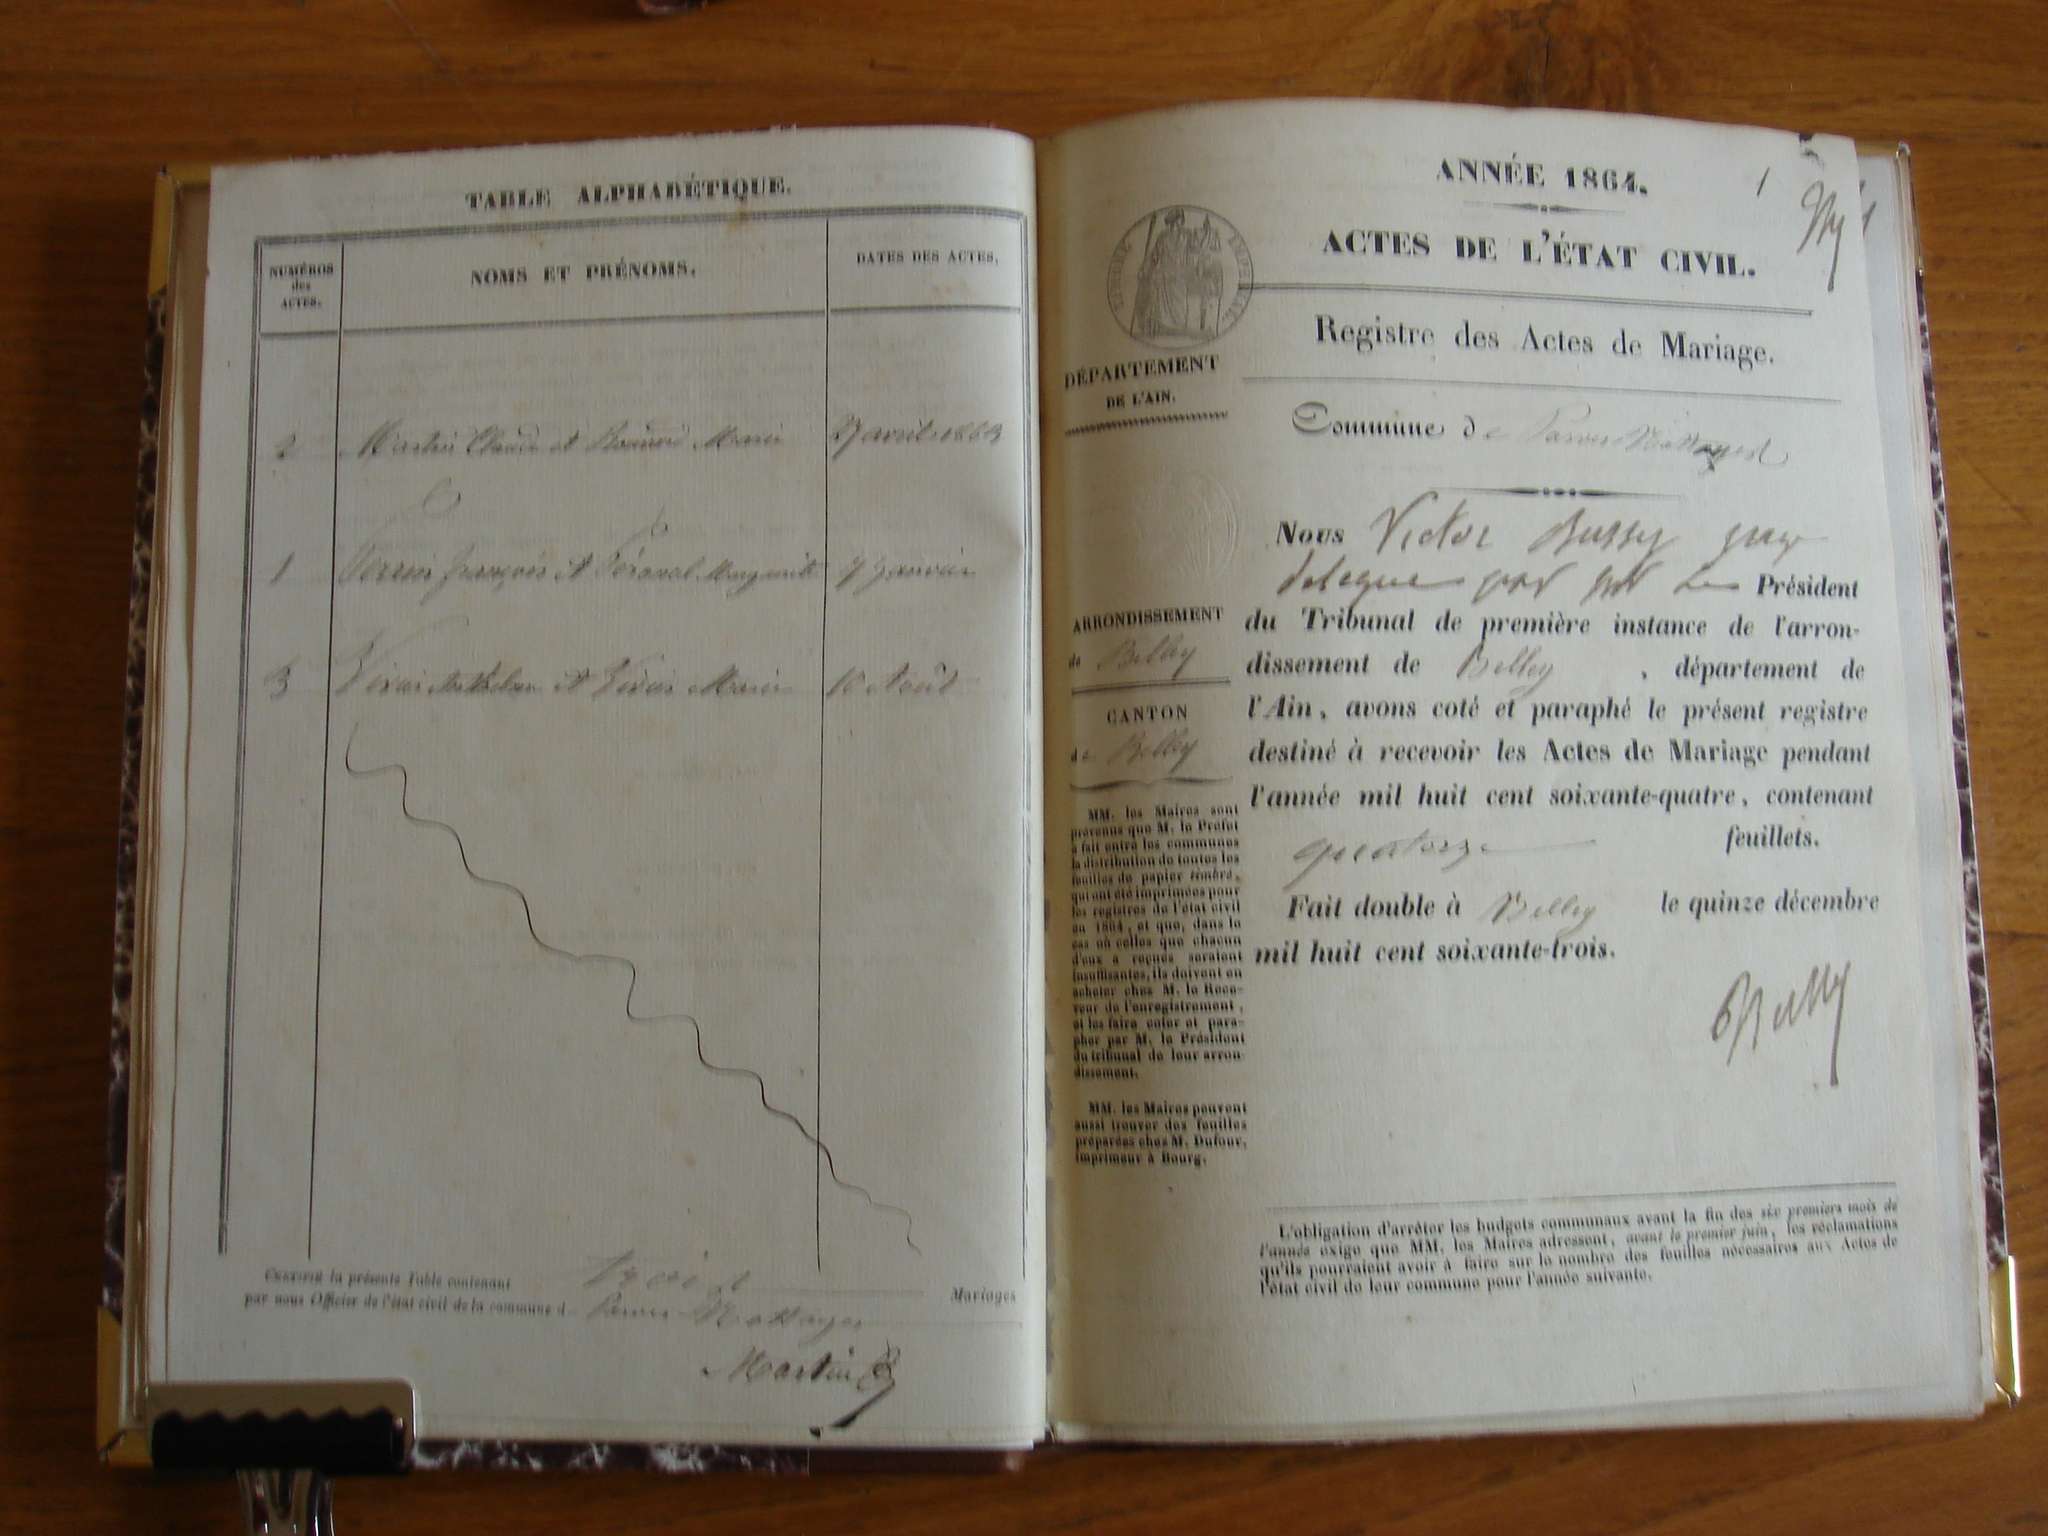 TABLE ALPHABÉTIQUE.
NUMÉROS
des
ACTES.
NOMS ET PRÉNOMS.
DATES DES ACTES.
2 Martin Claude et Marie 27 avril 1863
1 Perrin françois et Marguerite 7 janvier
3 et Marie 10 Août
CERTIFIÉ la présente Table contenant trois Mariages
par nous Officier de l'état civil de la commune d
Martin
ANNÉE 1864.
1
ACTES DE L'ÉTAT CIVIL.
TIMBRE IMPÉRIAL
Registre des Actes de Mariage.
DÉPARTEMENT
DE L'AIN.
Commune de
Nous Victor Bussy juge
délégué par Mr le Président
du Tribunal de première instance de l'arron-
dissement de Belley, département de
l'Ain, avons coté et paraphé le présent registre
destiné à recevoir les Actes de Mariage pendant
l'année mil huit cent soixante-quatre, contenant
quatorze feuillets.
Fait double à Belley le quinze décembre
mil huit cent soixante-trois.
ARRONDISSEMENT
de Belley
CANTON
de Belley
MM. les Maires sont
prévenus que M. le Préfet
a fait entre les communes
la distribution de toutes les
feuilles de papier timbré,
qui ont été imprimées pour
les registres de l'état civil
en 1864, et que, dans le
cas où celles que chacun
d'eux a reçues seraient
insuffisantes, ils doivent en
acheter chez M. le Rece-
veur de l'enregistrement,
et les faire coter et para-
pher par M. le Président
du tribunal de leur arron-
dissement.
MM. les Maires peuvent
aussi trouver des feuilles
préparées chez M. Dufour,
imprimeur à Bourg.
L'obligation d'arrêter les budgets communaux avant la fin des six premiers mois de
l'année exige que MM. les Maires adressent, avant le premier juin, les réclamations
qu'ils pourraient avoir à faire sur le nombre des feuilles nécessaires aux Actes de
l'état civil de leur commune pour l'année suivante.